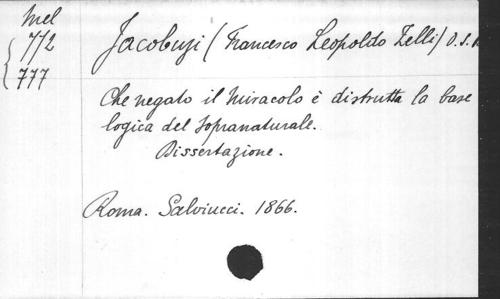 Mel
7/2
777
Jacobuzi (Francesco Leopoldo Zelli) O.S.
Che negato il Miracolo è distrutta la base
logica del Sopranaturale.
Dissertazione.
Roma. Salviucci. 1866.